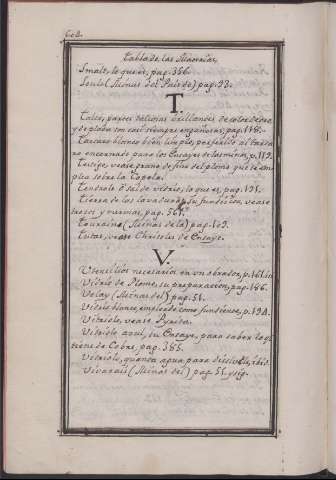 608.
Tabla de las Materias.
Smalt, lo que es, pag. 356.
Soulo (Minas del Pais de) pag. 93.
T.
Talco, partes talcosas brillantes de color de oro,
y de plata son casi siempre engañosas, pag. 118.
Tartaro blanco bien limpio, preferido al tarta-
ro encarnado para los Ensayes de las minas, p. 119.
Testigo, vease grano de fino del plomo que se em-
plea sobre la Copela.
Tendrole ó sal de vidrio, lo que es, pag. 191.
Tierra de las lavaduras, su fundicion, vease
trozos y mermas, pag. 561.
Touraine (Minas de la) pag. 109.
Tutas, vease Chrisoles de Ensaye.
V.
Utensilios necesarios en un obrador, p. 161.
Vidrio de Plomo, su preparacion, pag. 186.
Velay (Minas del) pag. 51.
Vidrio blanco, empleado como fundiente, p. 194.
Vitriolo, vease Pyrita.
Vitriolo azul, su Ensaye, para saber lo q.
tiene de Cobre, pag. 385.
Vitriolo, quanta agua para disolverlo, ibid.
Vivarais (Minas del) pag. 51. y sig.